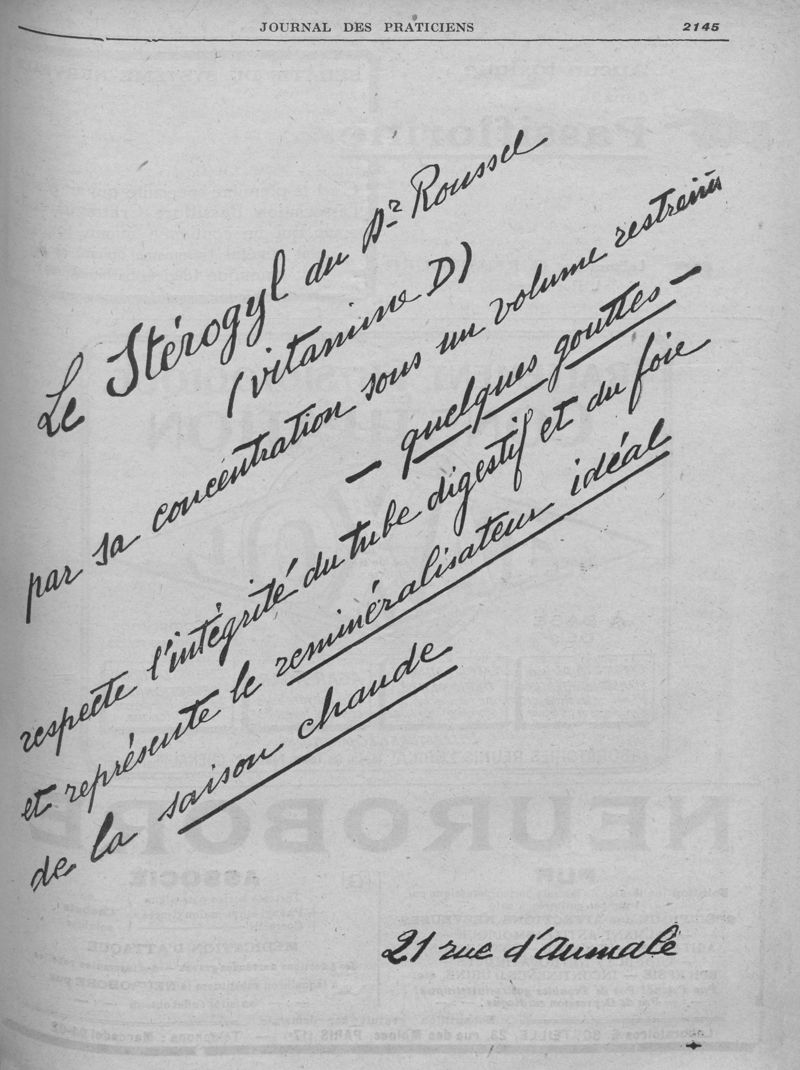 JOURNAL DES PRATICIENS 2145
Le Stérogyl du Dr Roussel
(vitamine D)
par sa concentration sous un volume restreint
— quelques gouttes —
respecte l'intégrité du tube digestif et du foie
et représente le reminéralisateur idéal
de la saison chaude
21 rue d'Aumale
NEUROBORE
PUR
ASSOCIÉ
MÉDICATION D'ATTAQUE
À BASE